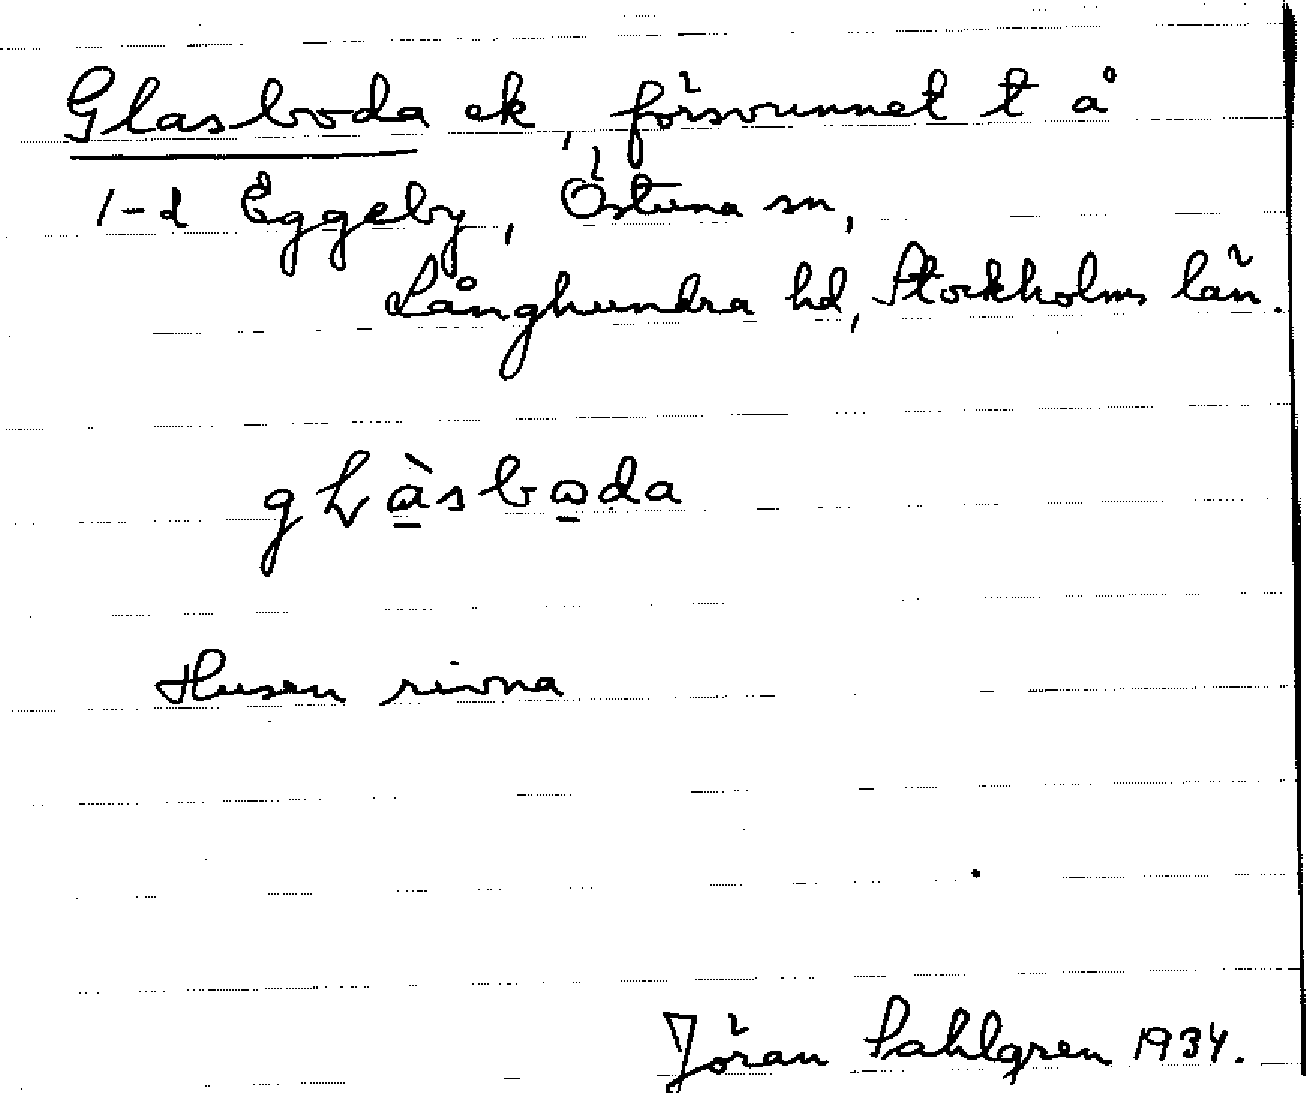 Glasboda ek, försvunnet t å
1-d Eggeby, Östuna sn,
Långhundra hd, Stockholms län.
gɫà̲sbɷ̲da
Husen rivna
Jöran Sahlgren 1934.